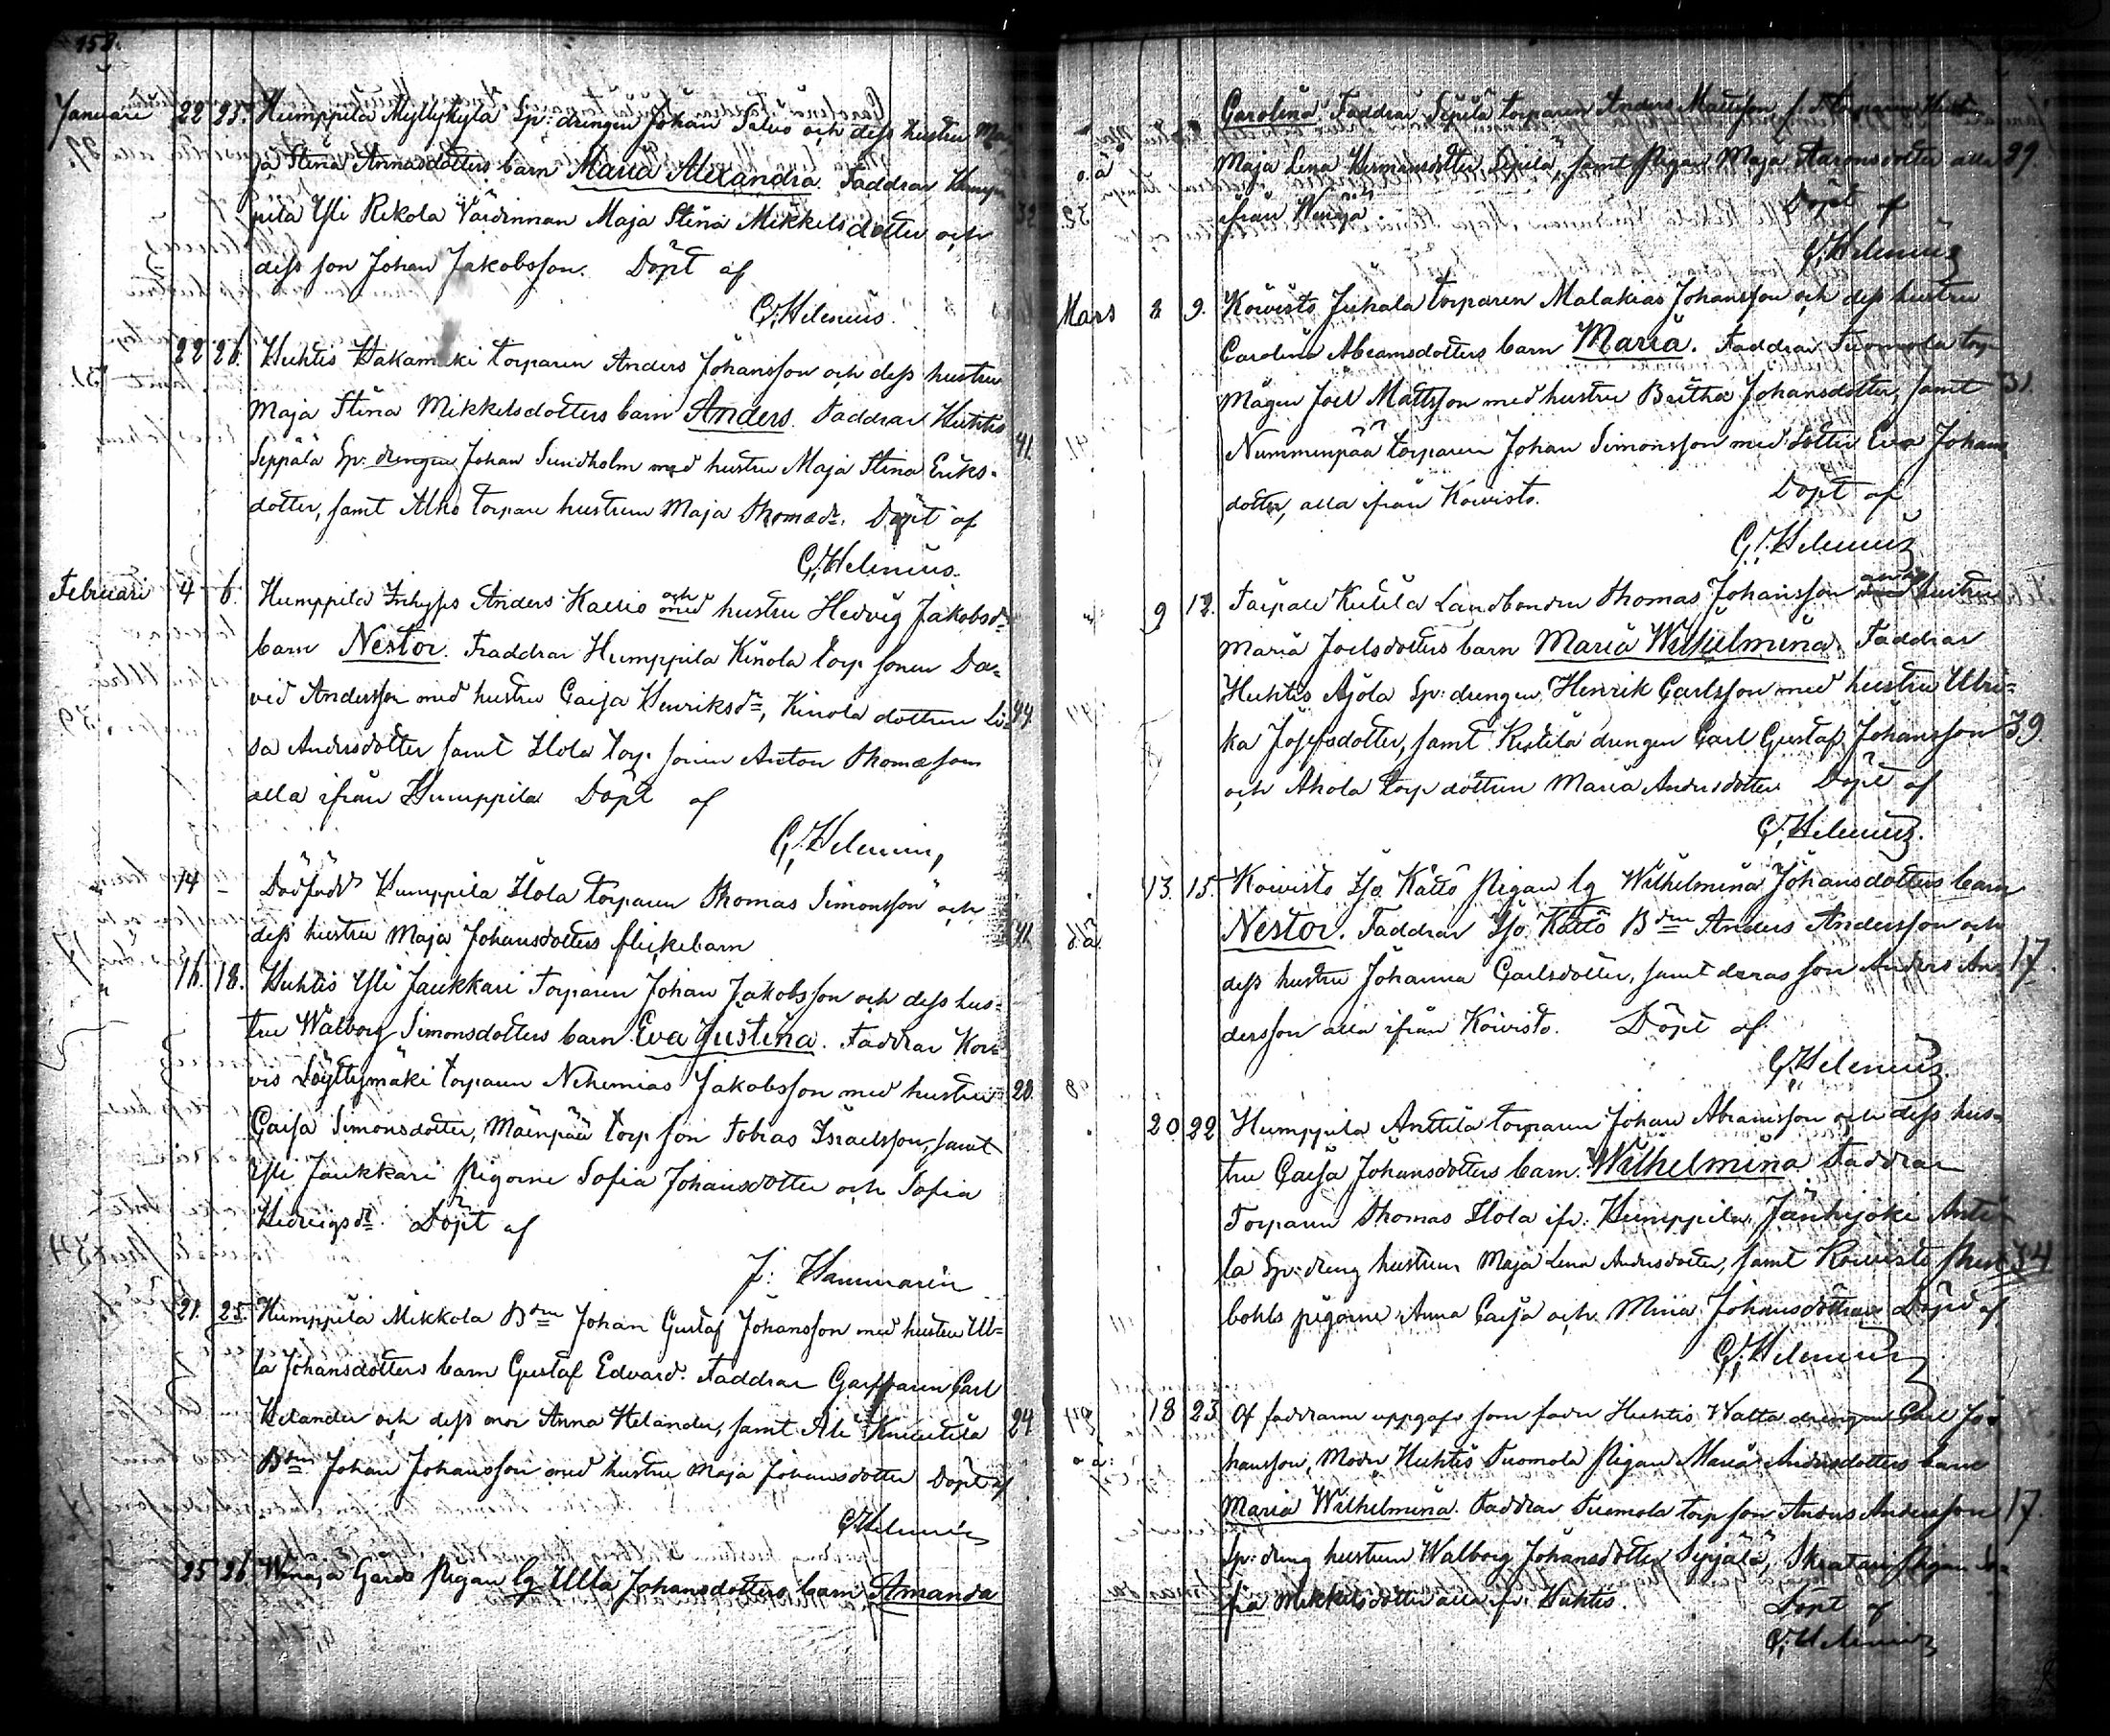 158.
Januari 22 23. Humppila Myllykylä Sp: drengen Johan Salvo och dess hustru Ma-
ja Stina Annasdotters barn Maria Alexandra. Faddrar Hump-
pila Yli Rekola Värdinnan Maja Stina Mikkelsdotter och 32
dess son Johan Jakobsson. Döpt af
G. Helenius.
22 26. Huhtis Hakamäki torparen Anders Johansson och dess hustru
Maja Stina Mikkelsdotters barn Anders. Faddrar Huhtis
Seppälä Sp: drengen Johan Sundholm med hustru Maja Stina Eriks- 41.
dotter, samt Alho torpare hustrun Maja Thomasdr. Döpt af
G. Helenius.
Februari 4 6. Humppila Inhyses Anders Kallio och med hustru Hedvig Jakobsdr
barn Nestor. Faddrar Humppila Kinola torp sonen Da-
vid Andersson med hustru Caisa Henriksdr, Kinola dottren Li- 44.
sa Andersdotter samt Ilola torp. sonen Anton Thomasson
alla ifrån Humppila Döpt af
G. Helenius
14 – Dödfödd Humppila Ilola torparen Thomas Simonsson och
dess hustru Maja Johansdotters flickebarn 41.
16. 18. Huhtis Yli Jaukkari Torparen Johan Jakobsson och dess hus-
tru Walborg Simonsdotters barn Eva Justina. Faddrar Kor-
vis Löyttymäki torparen Nehemias Jakobsson med hustru 28.
Caisa Simonsdotter, Mäenpää torp son Tobias Israelsson, samt
Yli Jaukkari Pigorne Sofia Johansdotter och Sofia
Hedvigsdr. Döpt af
J: Hammarén
21. 25. Humppila Mikkola Bdn Johan Gustaf Johansson med hustru Ul-
la Johansdotters barn Gustaf Edvard. Faddrar Garfvaren Carl
Helander och dess mor Anna Helander, samt Ali Knuutila 24
Bdn Johan Johansson med hustru Maja Johansdotter Döpt af
G. Helenius
25 26. Wenäjä Gards Pigan lg Ulla Johansdotters barn Amanda
Carolina. Faddrar Sepilä torparen Anders Mattsson
o.ä Maja Lena Hermansdotter Sepilä, samt Pigan Maja Aaronsdotter alla 29.
ifrån Wenäjä. Döpt af
G. Helenius
Mars 8 9. Koivisto Juhala torparen Malakias Johansson och dess hustru
Carolina Abramsdotters barn Maria. Faddrar Tuomola torp
mågen Joel Mattsson med hustru Beitha Johansdotter, samt 31
Nummenpää torparen Johan Simonsson med dotter Eva Johans-
dotter, alla ifrån Koivisto. Döpt af
G. Helenius
9 12. Taipale Kuula Landbonden Thomas Johansson hustru
Maria Joelsdotters barn Maria Wilhelmina. Faddrar
Huhtis Ajola Sp: drengen Henrik Carlsson med hustru Ulri-
ka Josefsdotter, samt Ristilä drengen Carl Gustaf Johansson 39.
och Ahola torp dottren Maria Andersdotter Döpt af
G. Helenius.
13. 15. Koivisto Iso Kättö Pigan lg Wilhelmina Johansdotters barn
o.ä Nestor. Faddrar Iso Kättö Bdn Anders Andersson och
dess hustru Johanna Carlsdotter, samt deras son Anders An- 17.
dersson alla ifrån Koivisto. Döpt af
G. Helenius.
20. 22 Humppila Anttila torparen Johan Abramsson och dess hus-
tru Caisa Johansdotters barn. Wilhelmina Faddrar
Torparen Thomas Ilola ifr. Humppila, Jänhijoki Antti-
la Sp: dreng hustrun Maja Lena Andersdotter, samt Koivisto 34
bohls pigorne Anna Caisa och Mina Johansdöttrar Döpt af
G. Helenius
18 23 Af faddrarne uppgafs som fader Huhtis Walta drengen Carl Jo-
o ä: hansson, Moder Huhtis Tuomola Pigan Maria Andersdotters barn
Maria Wilhelmina. Faddrar Tuomola torp son Anders Andersson 17.
Sp: dreng hustrun Walborg Johansdotter Sepälä, Skrätari Pigan So-
fia Mikkelsdotter alla ifr. Huhtis. Döpt af
G. Helenius